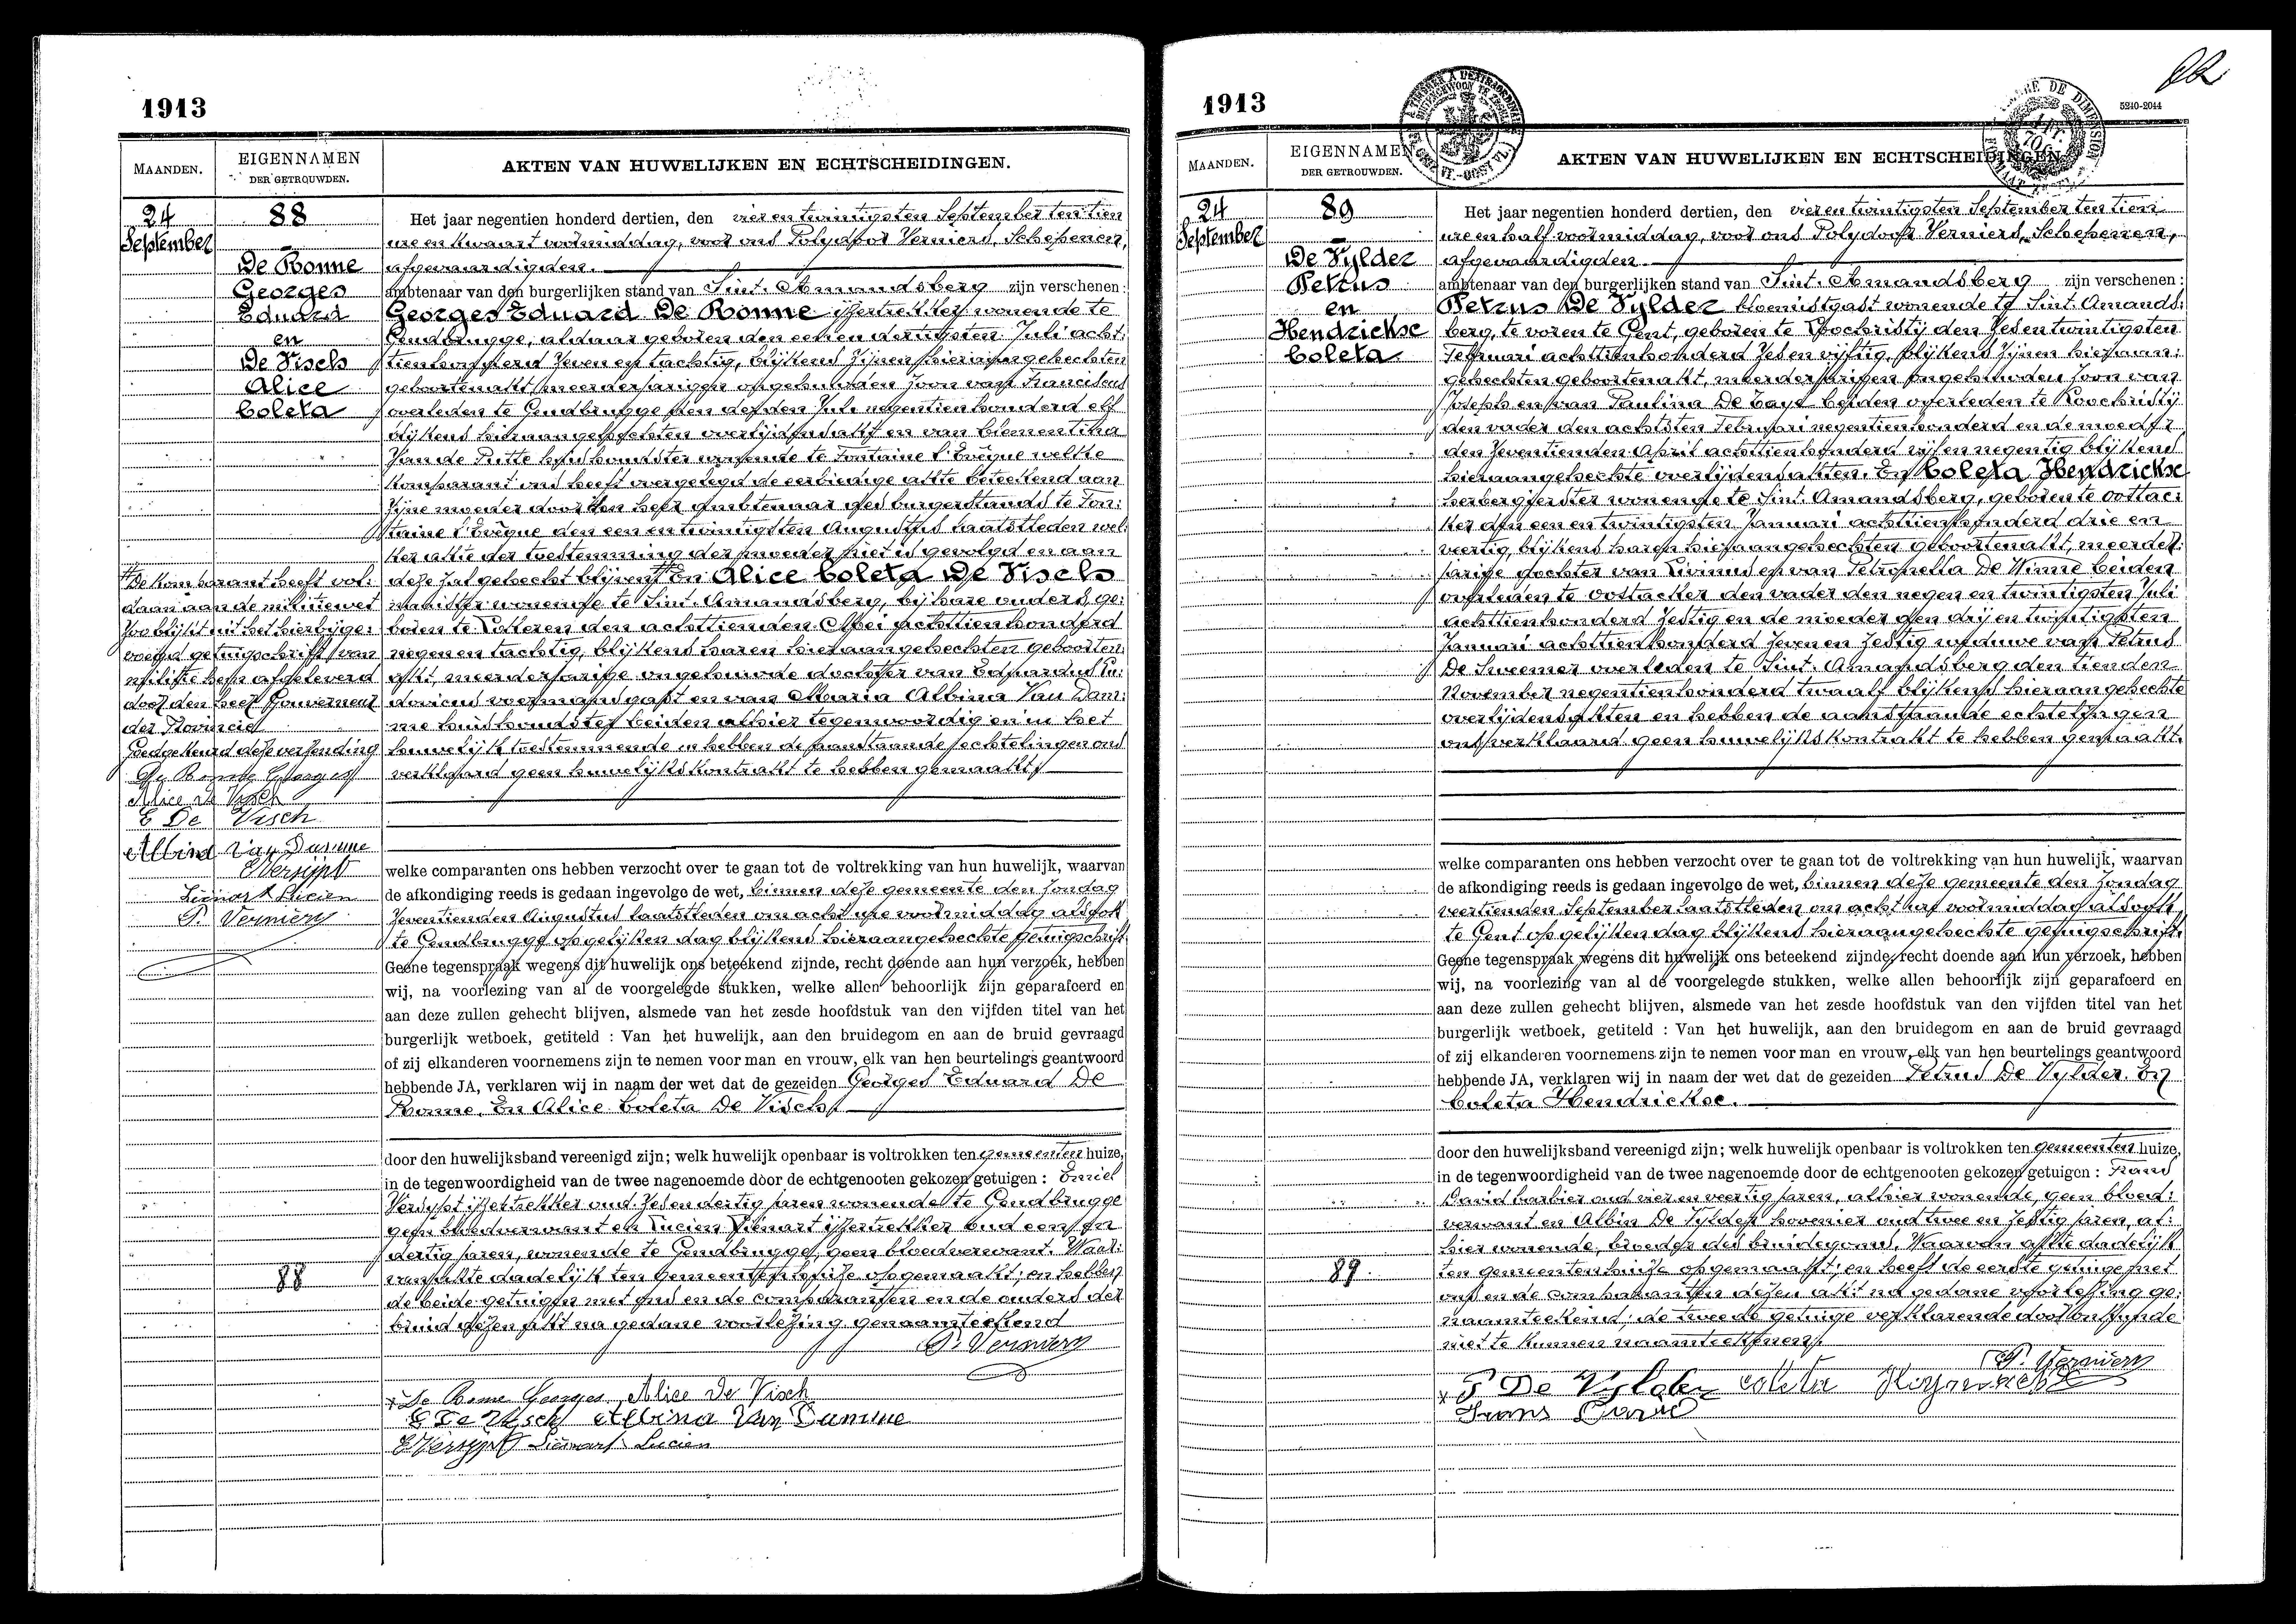 1913
MAANDEN.
EIGENNAMEN
DER GETROUWDEN.
AKTEN VAN HUWELIJKEN EN ECHTSCHEIDINGEN.
24
September
88
De Ronne
Georges
Eduard
en
De Visch
Alice
Coleta
Het jaar negentien honderd dertien, den vier en twintigsten September ten tien
ure en kwaart voormiddag, voor ons Polydoor Verniers, Schepenen,
afgevaardigden.
ambtenaar van den burgerlijken stand van Sint. Amandsberg zijn verschenen:
Georges Eduard De Ronne ijzertrekker wonende te
Gendbrugge, aldaar geboren den een en dertigsten Juli acht:
tienhonderd zeven en tachtig, blijkens zijnen hieraangehechten
geboortenakt, meerderjarigen ongehuwden zoon van Franciscus
overleden te Gendbrugge den derden Juli negentienhonderd elf
blijkens hieraangehechten overlijdensakt en van Clementina
Van de Putte huishoudster wonende te Fontaine l'Evêque welke
komparant ons heeft overgelegd de eerbiedige akte beteekend aan
zijne moeder door den heer ambtenaar des burgerstands te Fon:
taine l'Evêque den een en twintigsten Augustus laatstleden wel:
ker akte der toestemming der moeder niet is gevolgd en aan
deze zal gehecht blijven # En Alice Coleta De Visch
naaister wonende te Sint. Amandsberg, bij hare ouders, ge:
boren te Lateren den achttienden Mei achttienhonderd
negen en tachtig, blijkens haren hieraangehechten geboorten:
akt, meerderjarige ongehuwde dochter van Eduardus Lu:
dovicus voermansgast en van Maria Albina Van Dam:
me huishoudster beiden alhier tegenwoordig en in het
huwelijk toestemmende en hebben de aanstaande echtelingen ons
verklaard geen huwelijkskontrakt te hebben gemaakt.
# De komparant heeft vol:
daan aan de militiewet
zoo blijkt uit het hierbijge:
voegd getuigschrift van
militie hem afgeleverd
door den heer Gouverneur
der Provincie
Goedgekeurd deze verzending
De Ronne Georges
Alice de Visch
E De Visch
Albina Van Damme
E Versypt
Liénart Lucien
P. Verniers
welke comparanten ons hebben verzocht over te gaan tot de voltrekking van hun huwelijk, waarvan
de afkondiging reeds is gedaan ingevolge de wet, binnen deze gemeente den zondag
zeventienden Augustus laatstleden om acht ure voormiddag alsook
te Gendbrugge op gelijken dag blijkens hieraangehechte getuigschrift.
Geene tegenspraak wegens dit huwelijk ons beteekend zijnde, recht doende aan hun verzoek, hebben
wij, na voorlezing van al de voorgelegde stukken, welke allen behoorlijk zijn geparafeerd en
aan deze zullen gehecht blijven, alsmede van het zesde hoofdstuk van den vijfden titel van het
burgerlijk wetboek, getiteld : Van het huwelijk, aan den bruidegom en aan de bruid gevraagd
of zij elkanderen voornemens zijn te nemen voor man en vrouw, elk van hen beurtelings geantwoord
hebbende JA, verklaren wij in naam der wet dat de gezeiden Georges Eduard De
Ronne. En Alice Coleta De Visch
door den huwelijksband vereenigd zijn; welk huwelijk openbaar is voltrokken ten gemeentenhuize,
in de tegenwoordigheid van de twee nagenoemde door de echtgenooten gekozen getuigen : Emiel
Versypt ijzertrekker oud zes en dertig jaren wonende te Gendbrugge
geen bloedverwant en Lucien Liénart ijzertrekker oud een en
dertig jaren, wonende te Gendbrugge, geen bloedverwant. Waar:
van akte dadelijk ten Gemeentenhuize opgemaakt; en hebben
de beide getuigen met ons en de comparanten en de ouders der
bruid dezen akt na gedane voorlezing genaamteekend
88
P. Verniers
De Ronne Georges Alice De Visch
E De Visch Albina Van Damme
E Versypt Liénart Lucien
1913
5240-2044
MAANDEN.
EIGENNAMEN
DER GETROUWDEN.
AKTEN VAN HUWELIJKEN EN ECHTSCHEIDINGEN.
24
September
89
De Vylder
Petrus
en
Hendrickse
Coleta
Het jaar negentien honderd dertien, den vier en twintigsten September ten tien
ure en half voormiddag, voor ons Polydoor Verniers, Schepenen,
afgevaardigden.
ambtenaar van den burgerlijken stand van Sint. Amandsberg zijn verschenen :
Petrus De Vylder bloemistgast wonende te Sint. Amands:
berg, te voren te Gent, geboren te Loochristij den zes en twintigsten
Februari achttienhonderd zes en vijftig, blijkens zijnen hieraan:
gehechten geboortenakt, meerderjarigen ongehuwden zoon van
Joseph en van Paulina De Baye beiden overleden te Loochristij
den vader den achtsten Februari negentienhonderd en de moeder
den zeventienden April achttienhonderd vijf en negentig blijkens
hieraangehechte overlijdensakten. En Coleta Hendrickse
herbergierster wonende te Sint. Amandsberg, geboren te Oostac:
ker den een en twintigsten Januari achttienhonderd drie en
veertig, blijkens haren hieraangehechten geboortenakt, meerder:
jarige dochter van Livinus en van Petronella De Winne beiden
overleden te Oostacker den vader den negen en twintigsten Juli
achttienhonderd zestig en de moeder den drij en twintigsten
Januari achttienhonderd zeven en zestig weduwe van Petrus
De Sweemer overleden te Sint. Amandsberg den tienden
November negentienhonderd twaalf blijkens hieraangehechte
overlijdensakten en hebben de aanstaande echtelingen
ons verklaard geen huwelijkskontrakt te hebben gemaakt.
welke comparanten ons hebben verzocht over te gaan tot de voltrekking van hun huwelijk, waarvan
de afkondiging reeds is gedaan ingevolge de wet, binnen deze gemeente den zondag
veertienden September laatstleden om acht ure voormiddag alsook
te Gent op gelijken dag blijkens hieraangehechte getuigschrift.
Geene tegenspraak wegens dit huwelijk ons beteekend zijnde, recht doende aan hun verzoek, hebben
wij, na voorlezing van al de voorgelegde stukken, welke allen behoorlijk zijn geparafeerd en
aan deze zullen gehecht blijven, alsmede van het zesde hoofdstuk van den vijfden titel van het
burgerlijk wetboek, getiteld : Van het huwelijk, aan den bruidegom en aan de bruid gevraagd
of zij elkanderen voornemens zijn te nemen voor man en vrouw, elk van hen beurtelings geantwoord
hebbende JA, verklaren wij in naam der wet dat de gezeiden Petrus De Vylder. En
Coleta Hendrickse.
door den huwelijksband vereenigd zijn; welk huwelijk openbaar is voltrokken ten gemeentenhuize,
in de tegenwoordigheid van de twee nagenoemde door de echtgenooten gekozen getuigen : Frans
David barbier oud vier en veertig jaren, alhier wonende, geen bloed:
verwant en Albin De Vylder hovenier oud twee en zestig jaren, al:
hier wonende, broeder des bruidegoms. Waarvan akte dadelijk
ten gemeentenhuize opgemaakt; en heeft de eerste getuige met
ons en de comparanten dezen akt na gedane voorlezing ge:
naamteekend; de tweede getuige verklarende door onkunde
niet te kunnen naamteekenen.
89
P. Verniers
P De Vylder Coleta
Frans David